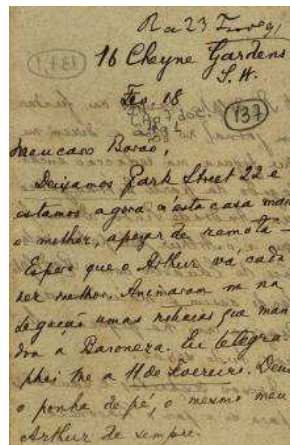 R a 23
16 Cheyne Gardens
S. W.
Fev. 18
137
Meu caro Barão,
Deixamos Park Street 22 e
estamos agora n'esta casa mui
o melhor, apezar de remota –
Espero que o Arthur vá cada
ser melhor. Animaram m na
legação umas noticias que man
dou a Baroneza. Eu telegra-
phei lhe a 11 de Fevereiro. Deus
o ponha de pé, o mesmo meu
Arthur de sempre.